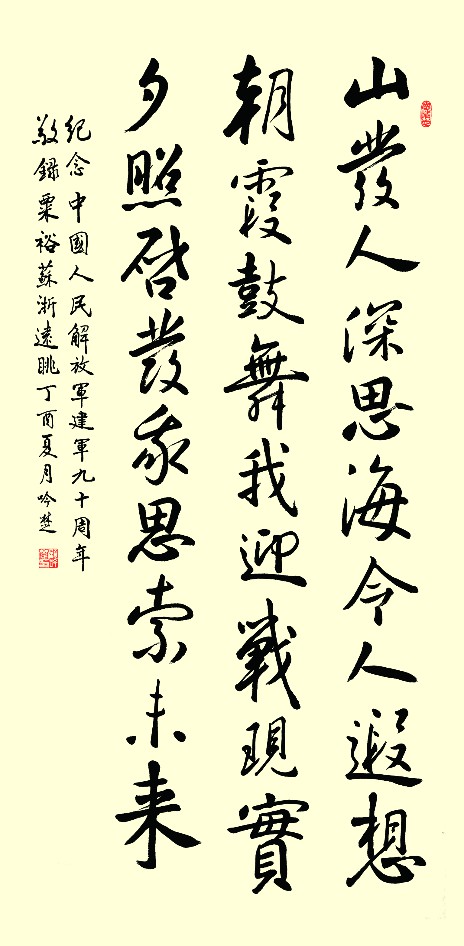 山發人深思海令人遐想
朝霞鼓舞我迎戰現實
夕照啓發我思索未来
紀念中國人民解放軍建軍九十周年
敬録粟裕蘇浙遠眺丁酉夏月吟楚